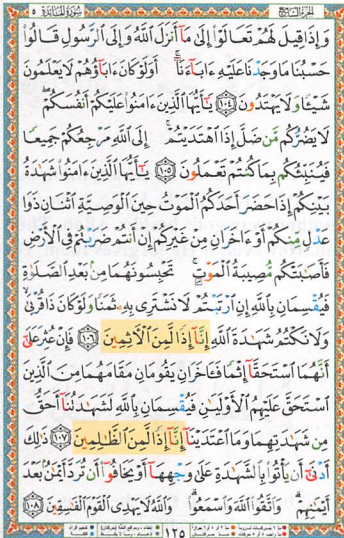 الجزء السابع سورة المائدة ٥
وَإِذَا قِيلَ لَهُمْ تَعَالَوْا۟ إِلَىٰ مَآ أَنزَلَ ٱللَّهُ وَإِلَى ٱلرَّسُولِ قَالُوا۟
حَسْبُنَا مَا وَجَدْنَا عَلَيْهِ ءَابَآءَنَآ ۚ أَوَلَوْ كَانَ ءَابَآؤُهُمْ لَا يَعْلَمُونَ
شَيْـًٔا وَلَا يَهْتَدُونَ ۝١٠٤ يَـٰٓأَيُّهَا ٱلَّذِينَ ءَامَنُوا۟ عَلَيْكُمْ أَنفُسَكُمْ ۖ
لَا يَضُرُّكُم مَّن ضَلَّ إِذَا ٱهْتَدَيْتُمْ ۚ إِلَى ٱللَّهِ مَرْجِعُكُمْ جَمِيعًا
فَيُنَبِّئُكُم بِمَا كُنتُمْ تَعْمَلُونَ ۝١٠٥ يَـٰٓأَيُّهَا ٱلَّذِينَ ءَامَنُوا۟ شَهَـٰدَةُ
بَيْنِكُمْ إِذَا حَضَرَ أَحَدَكُمُ ٱلْمَوْتُ حِينَ ٱلْوَصِيَّةِ ٱثْنَانِ ذَوَا
عَدْلٍ مِّنكُمْ أَوْ ءَاخَرَانِ مِنْ غَيْرِكُمْ إِنْ أَنتُمْ ضَرَبْتُمْ فِى ٱلْأَرْضِ
فَأَصَـٰبَتْكُم مُّصِيبَةُ ٱلْمَوْتِ ۚ تَحْبِسُونَهُمَا مِنۢ بَعْدِ ٱلصَّلَوٰةِ
فَيُقْسِمَانِ بِٱللَّهِ إِنِ ٱرْتَبْتُمْ لَا نَشْتَرِى بِهِۦ ثَمَنًا وَلَوْ كَانَ ذَا قُرْبَىٰ ۙ
وَلَا نَكْتُمُ شَهَـٰدَةَ ٱللَّهِ إِنَّآ إِذًا لَّمِنَ ٱلْـَٔاثِمِينَ ۝١٠٦ فَإِنْ عُثِرَ عَلَىٰٓ
أَنَّهُمَا ٱسْتَحَقَّآ إِثْمًا فَـَٔاخَرَانِ يَقُومَانِ مَقَامَهُمَا مِنَ ٱلَّذِينَ
ٱسْتَحَقَّ عَلَيْهِمُ ٱلْأَوْلَيَـٰنِ فَيُقْسِمَانِ بِٱللَّهِ لَشَهَـٰدَتُنَآ أَحَقُّ
مِن شَهَـٰدَتِهِمَا وَمَا ٱعْتَدَيْنَآ إِنَّآ إِذًا لَّمِنَ ٱلظَّـٰلِمِينَ ۝١٠٧ ذَٰلِكَ
أَدْنَىٰٓ أَن يَأْتُوا۟ بِٱلشَّهَـٰدَةِ عَلَىٰ وَجْهِهَآ أَوْ يَخَافُوٓا۟ أَن تُرَدَّ أَيْمَـٰنٌۢ بَعْدَ
أَيْمَـٰنِهِمْ ۗ وَٱتَّقُوا۟ ٱللَّهَ وَٱسْمَعُوا۟ ۗ وَٱللَّهُ لَا يَهْدِى ٱلْقَوْمَ ٱلْفَـٰسِقِينَ ۝١٠٨
١٢٥